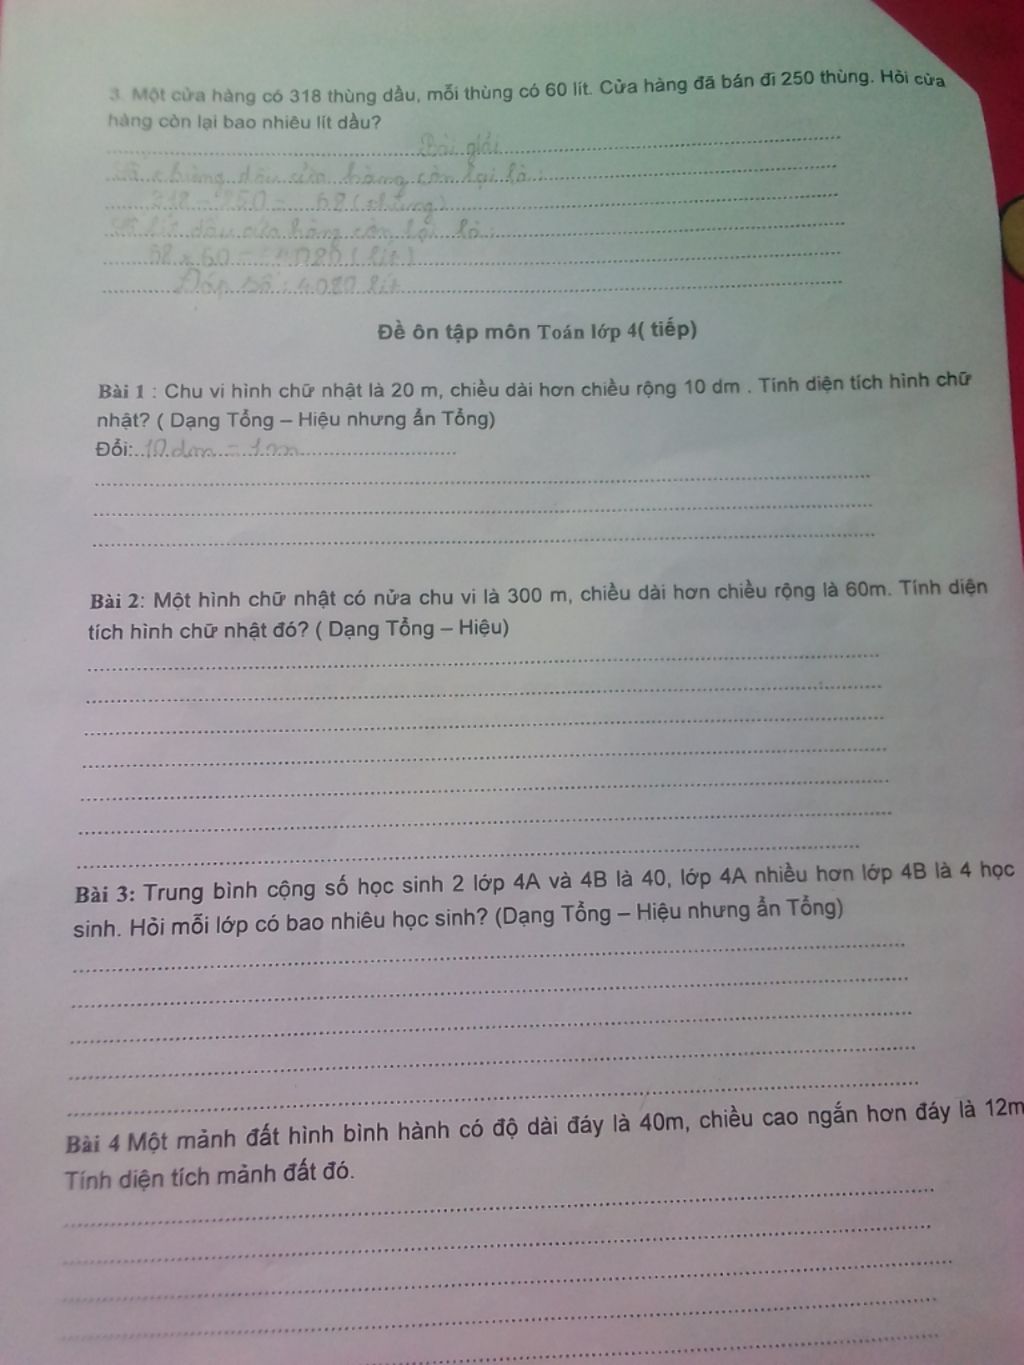 3. Một cửa hàng có 318 thùng dầu, mỗi thùng có 60 lít. Cửa hàng đã bán đi 250 thùng. Hỏi cửa
hàng còn lại bao nhiêu lít dầu?
Bài giải
Số thùng dầu cửa hàng còn lại là:
318 - 250 = 68 (thùng)
Số lít dầu cửa hàng còn lại là:
68 x 60 = 4080 (lít)
Đáp số: 4080 lít
Đề ôn tập môn Toán lớp 4( tiếp)
Bài 1 : Chu vi hình chữ nhật là 20 m, chiều dài hơn chiều rộng 10 dm . Tính diện tích hình chữ
nhật? ( Dạng Tổng – Hiệu nhưng ẩn Tổng)
Đổi: 10 dm = 1 m
Bài 2: Một hình chữ nhật có nửa chu vi là 300 m, chiều dài hơn chiều rộng là 60m. Tính diện
tích hình chữ nhật đó? ( Dạng Tổng – Hiệu)
Bài 3: Trung bình cộng số học sinh 2 lớp 4A và 4B là 40, lớp 4A nhiều hơn lớp 4B là 4 học
sinh. Hỏi mỗi lớp có bao nhiêu học sinh? (Dạng Tổng – Hiệu nhưng ẩn Tổng)
Bài 4 Một mảnh đất hình bình hành có độ dài đáy là 40m, chiều cao ngắn hơn đáy là 12m
Tính diện tích mảnh đất đó.